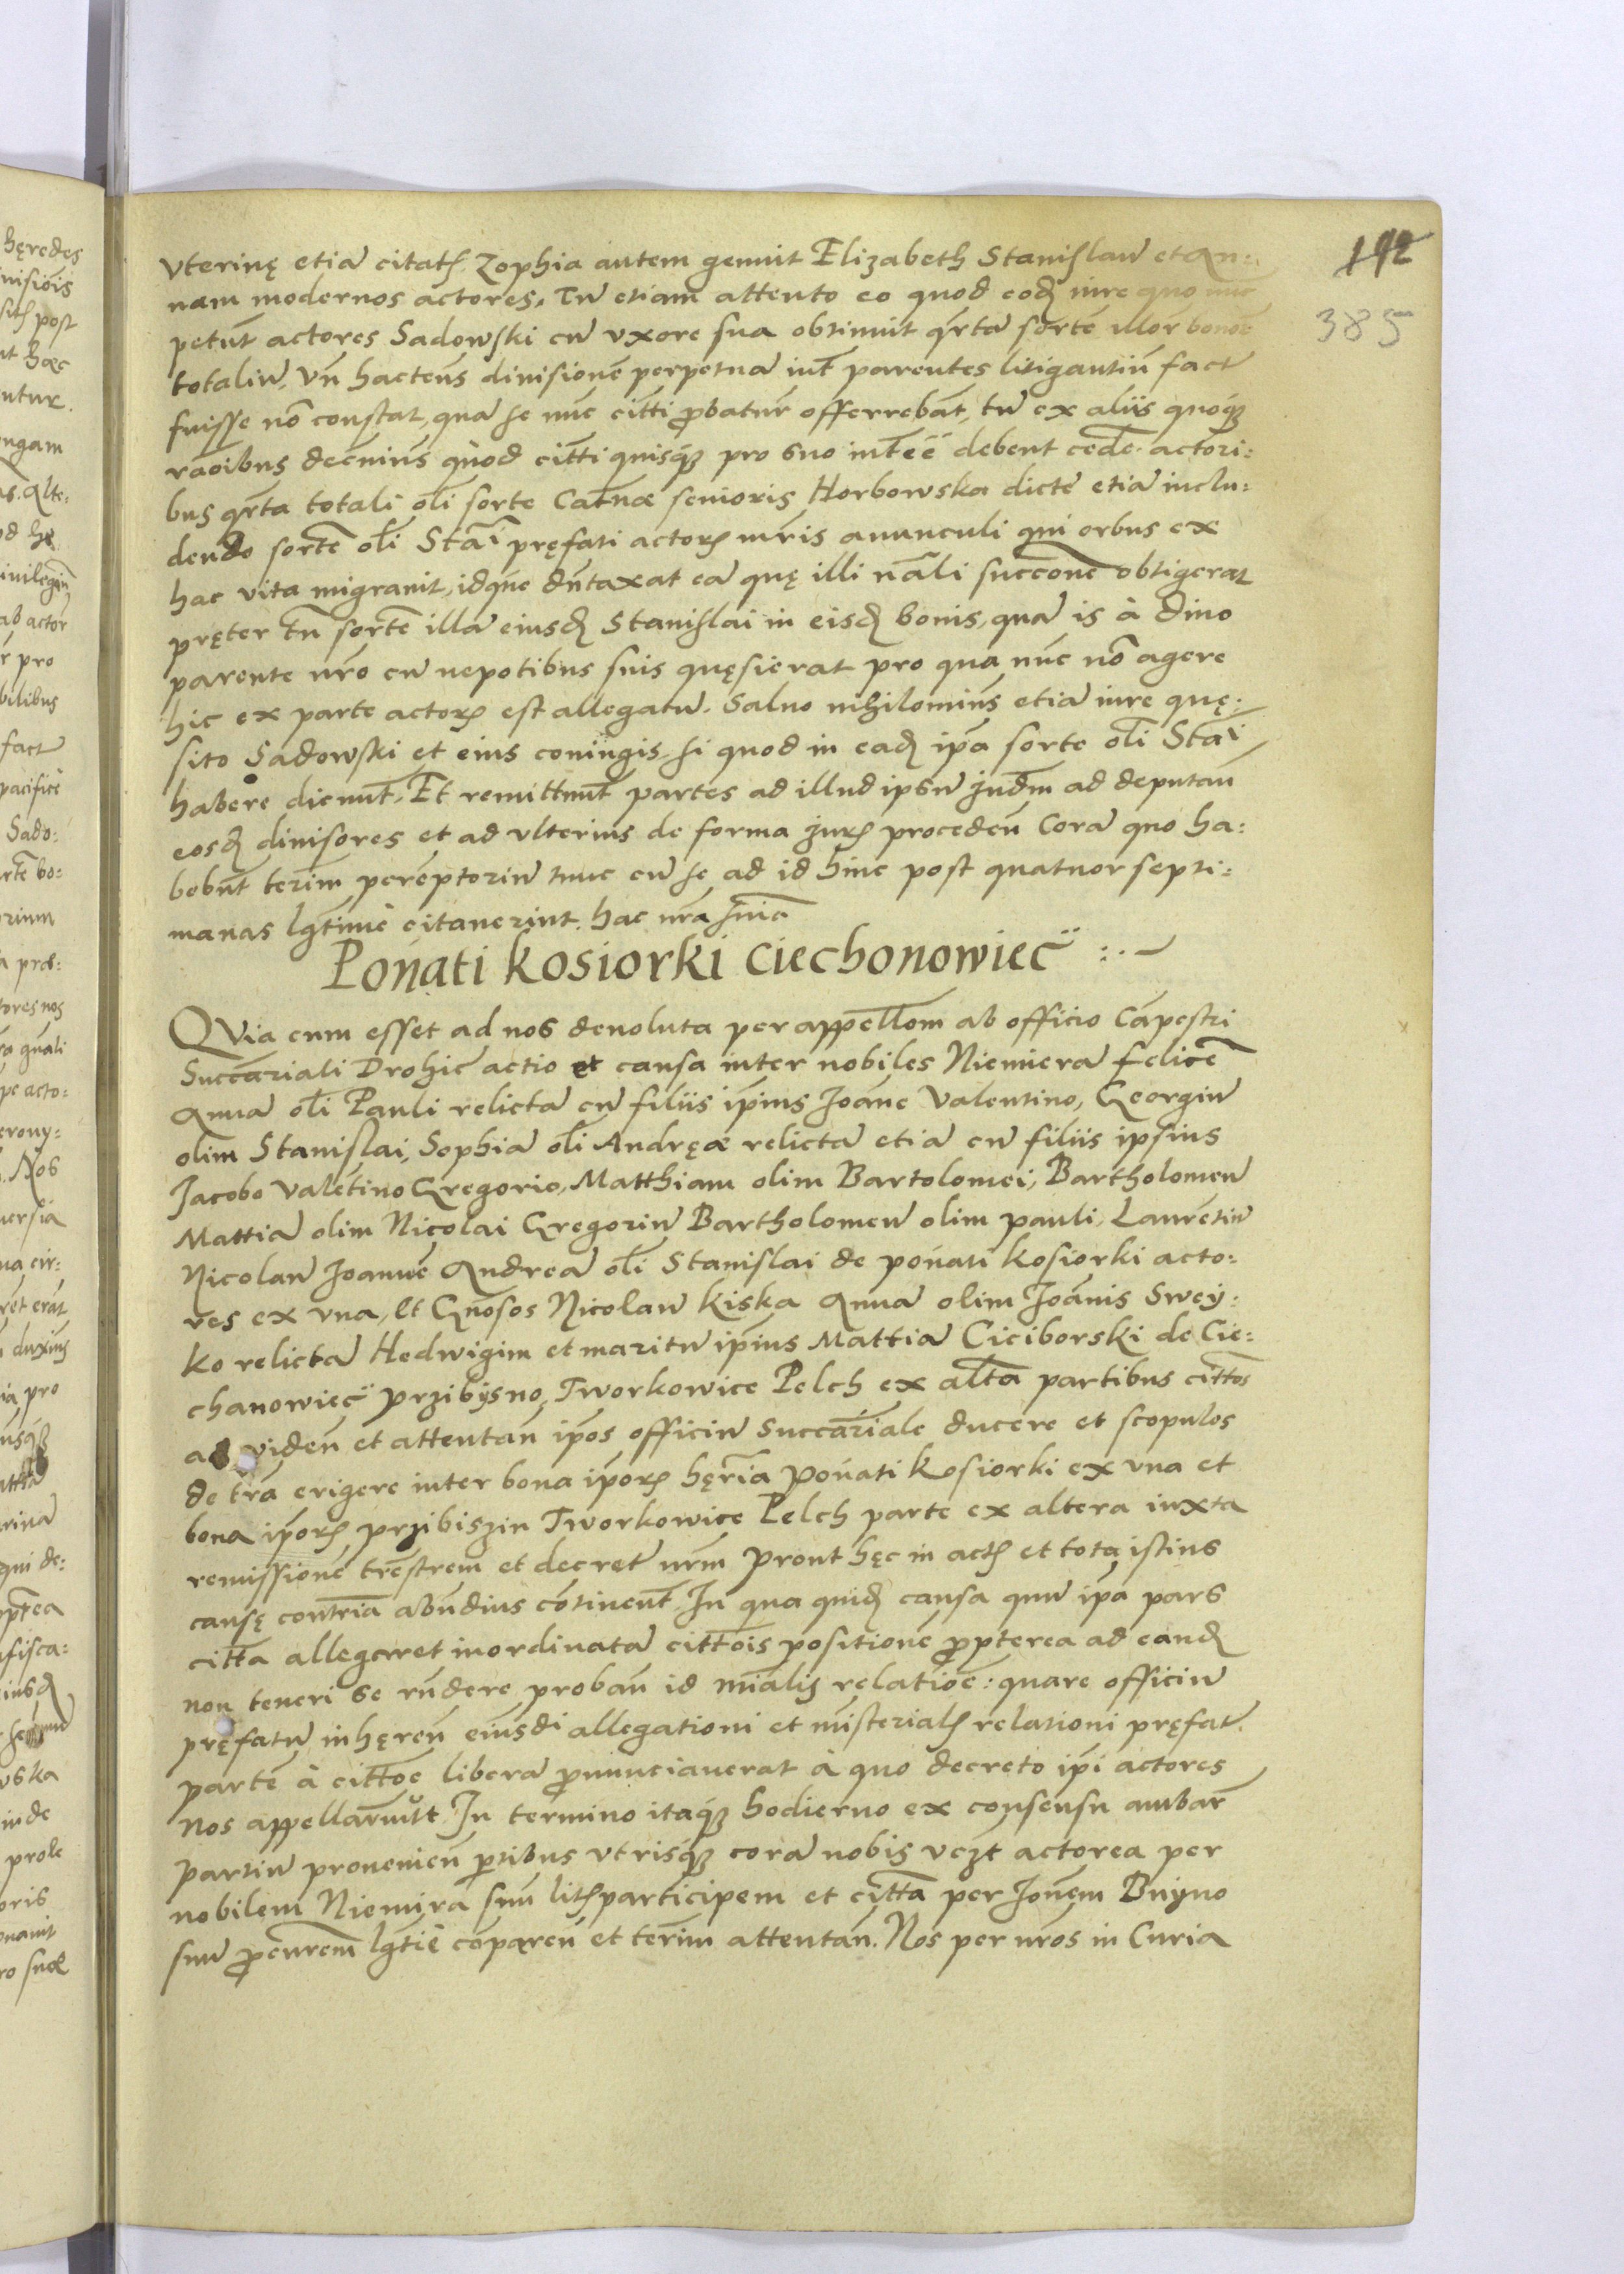 192
385
vterinę etiā citatꝝ Zophia autem genuit Elizabeth Stanislaū et An:
nam modernos actores. Tū etiam attento eo quod eodē iure quo nūc
petūt actores Sadowski cū vxore sua obtinuit qrtā sortē illor bonor
totaliū, vn̄ hactenus diuisionē perpetuā int̄ parentes litigantiū fact
fuisse nō constat, quā se nūc citti ꝓbaturꝰ offerrebāt, tū ex aliis quoqꝫ
raōibus decniuꝰ quod citti quisqꝫ pro suo int̄ēē debent cedē actori:
bus qrtā totali oli sorte Catnæ senioris Horbowska dictē etiā inclu:
dendo sortē oli Stai pręfati actorꝝ mris auunculi qui orbus ex
hac vita migrauit, idque dūtaxat eā quę illi nāli succone obtigerat
pręter tn̄ sortē illā eiusdē Stanislai in eisdē bonis, quā is à diuo
parente nr̄o cū nepotibus suis quęsierat pro qua nūc nō agere
hic ex parte actorꝝ est allegatū. Saluo nihilominus etiā iure quę:
sito Sadowski et eius coniugis si quod in eadē ip̄a sorte oli Stai
habere dicūnt. Et remittūnt partes ad illud ipsū judm ad deputan̄
eosdē diuisores et ad vlterius de forma jurꝝ procedēn̄ Corā quo ha:
bebūt termī peremptoriū tunc cū se ad id hinc post quatuor septi:
manas lgtimè citauerint. hac nr̄a sn̄ia
Ponati kosiorki Ciechonowiec̄ :.~
QVia cum esset ad nos deuoluta per appellom ab officio Capestri
Succariali Drohic actio et causa inter nobiles Niemierā felicē
Annā oli Pauli relictā cū filiis ip̄ius Joāne Valentino, Georgiū
olim Stanislai, Sophiā oli Andręæ relictā etiā cū filiis ipsius
Jacobo Valētino Gregorio, Matthiam olim Bartolomei, Bartholomeū
Mattiā olim Nicolai Gregoriū Bartholomeū olim pauli, Laurētiū
Nicolaū Joannē Andreā oli Stanislai de ponati kosiorki acto:
res ex vna, et Gnosos Nicolaū kiska Annā olim Joānis Swey:
ko relictā Hedwigim et maritū ip̄ius Mattiā Ciciborski de Cie:
chanowiec̄ przibysno, Tworkowice Pelch ex alta partibus cittos
ad viden̄ et attentan̄ ip̄os officiū Succariale ducere et scopulos
de tr̄a erigere inter bona ip̄orꝝ hęria Ponati kosiorki ex vna et
bona ip̄orꝝ przibiszin Tworkowice Pelch parte ex altera iuxta
remissionē tr̄estrem et decret nr̄m prout hęc in actꝝ et tota istius
causę contria abundius cōtinent̄. In qua quidē causa quū ip̄a pars
citta allegaret inordinatā cittōis positionē ꝓpterea ad eandē
non teneri se rn̄dere proban̄ id mialis relatiōe: quare officiū
pręfatū inhęren̄ eiusdi allegationi et misterialꝝ relationi pręfat
partē à cittōe liberā ꝓnunciauerat à quo decreto ip̄i actores
nos appellarūnt. In termino itaqꝫ hodierno ex consensu ambar
partiū prouenien̄ ꝑtibus vtrisqꝫ corā nobis vezt actorea per
nobilem Niemirā suū litꝝ participem et citta per Jonem Bnyno
suū ꝓcurem lgtiē cōparen̄ et termī attentan̄. Nos per nr̄os in Curia